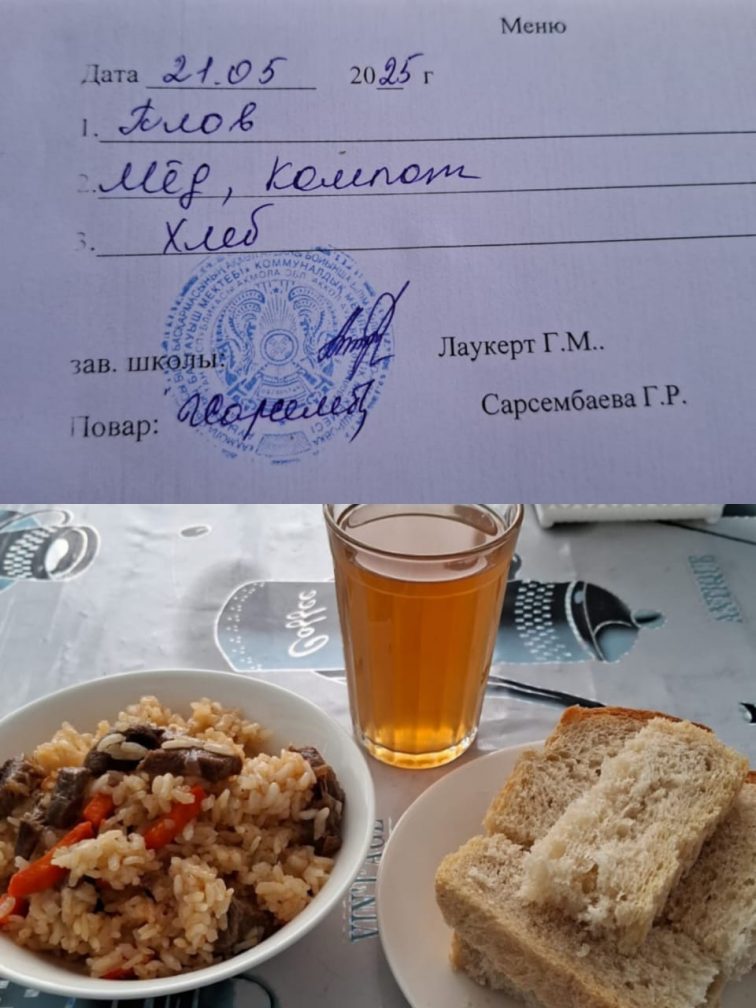 Меню
Дата 21.05 2025 г
1. Плов
2. Мёд, Компот
3. Хлеб
КОММУНАЛДЫҚ
зав. школы: Лаукерт Г.М..
Повар: Сарсембаева Г.Р.
Coffee
VINTAGE